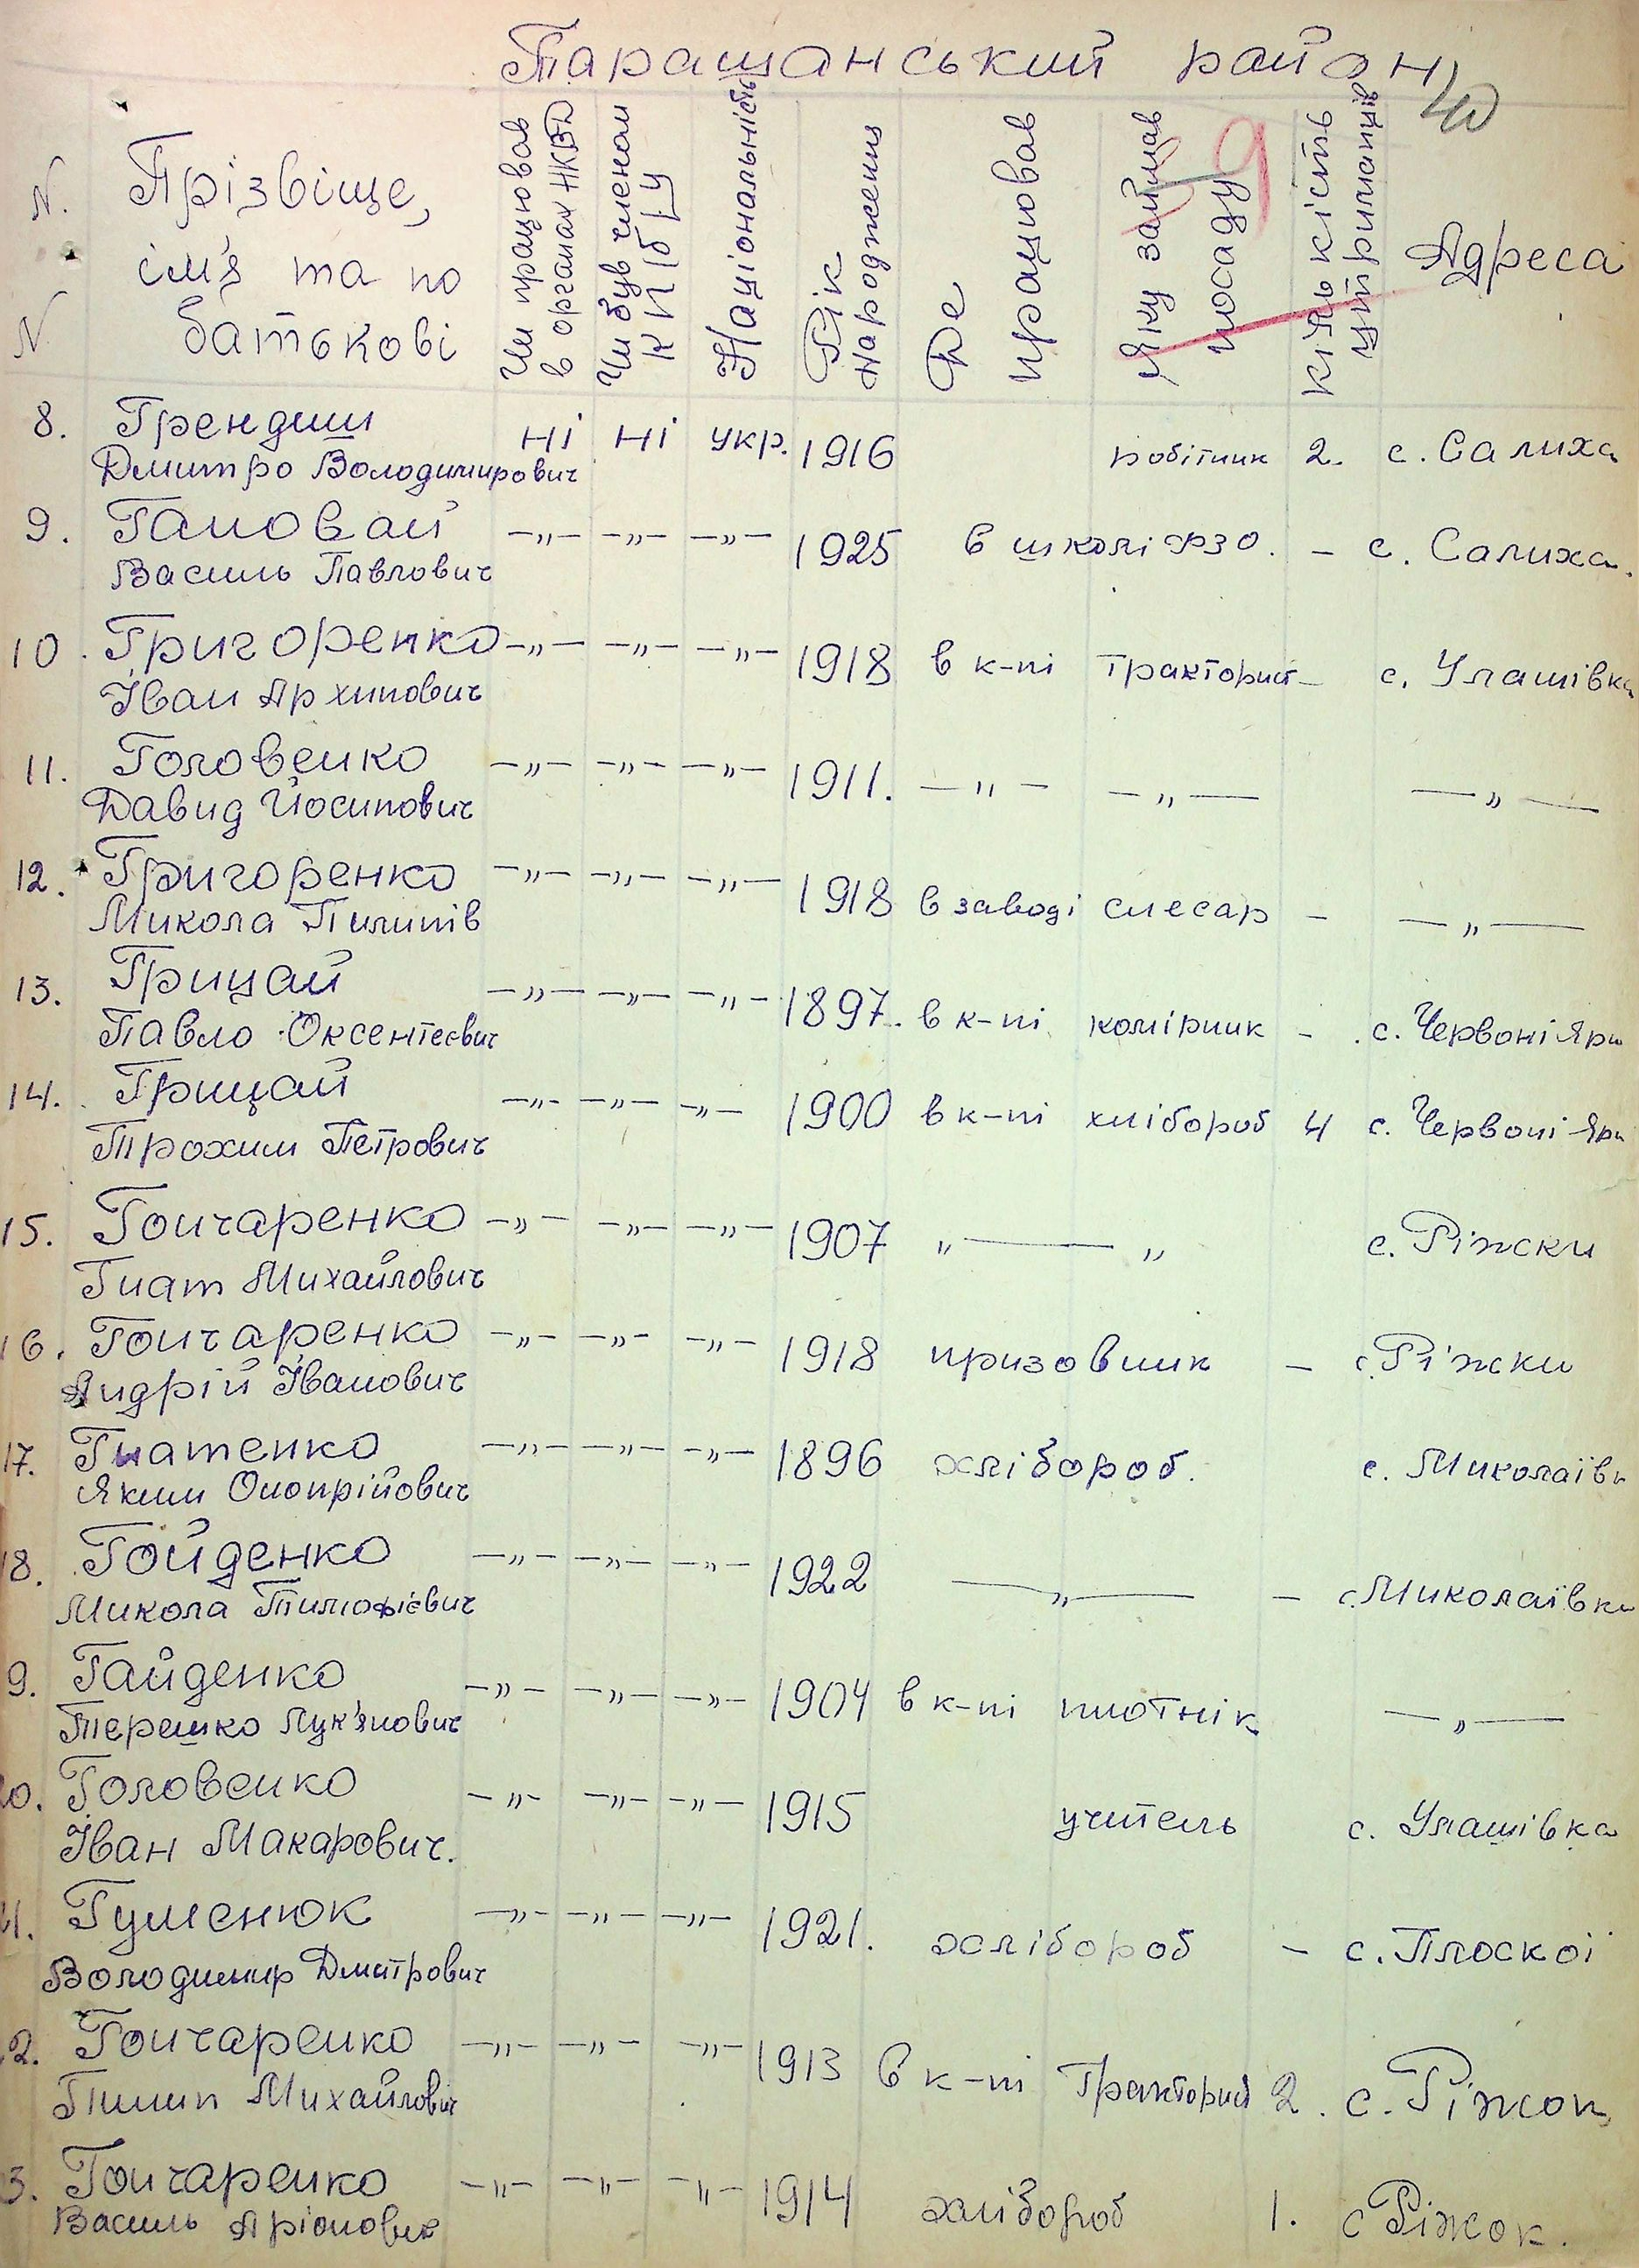 Таращанський район
40
9
N. N
Прізвіще, ім'я та по батькові
Чи працював в органах НКВД
Чи був членом КП(б)У
Національність
Рік народження
Де працював
Яку займав посаду
Кількість утриманців
Адреса
8. Грендиш ні ні укр. 1916 робітник 2. с. Салиха
Дмитро Володимирович
9. Гановай —„— —„— —„— 1925 в школі ФЗО. – с. Салиха.
Василь Павлович
10. Григоренко —„— —„— —„— 1918 в к-пі тракторист – с. Улашівка
Іван Архипович
11. Головенко —„— —„— —„— 1911. —„— —„— —„—
Давид Йосипович
12. Григоренко —„— —„— —„— 1918 в заводі слесар – —„—
Микола Пилипів
13. Грицай —„— —„— —„— 1897. в к-пі комірник – с. Червоні Яри
Павло Оксентєєвич
14. Грицай —„— —„— —„— 1900 в к-пі хлібороб 4 с. Червоні Яри
Трохим Петрович
15. Гончаренко —„— —„— —„— 1907 „——„ с. Ріжки
Гнат Михайлович
16. Гончаренко —„— —„— —„— 1918 призовник – с. Ріжки
Андрій Іванович
17. Гнатенко —„— —„— —„— 1896 хлібороб. с. Миколаївк
Яким Онопрійович
18. Гойденко —„— —„— —„— 1922 —„— – с. Миколаївки
Микола Тимофієвич
9. Гайденко —„— —„— —„— 1904 в к-пі плотнік —„—
Терешко Лук'янович
0. Головенко —„— —„— —„— 1915 учитель с. Улашівка
Іван Макарович.
1. Гуменюк —„— —„— —„— 1921. хлібороб – с. Плоскої
Володимир Дмитрович
2. Гончаренко —„— —„— —„— 1913 в к-пі тракторист 2. с. Ріжок
Пилип Михайлович
3. Гончаренко —„— —„— —„— 1914 хлібороб 1. с Ріжок.
Василь Аріонович